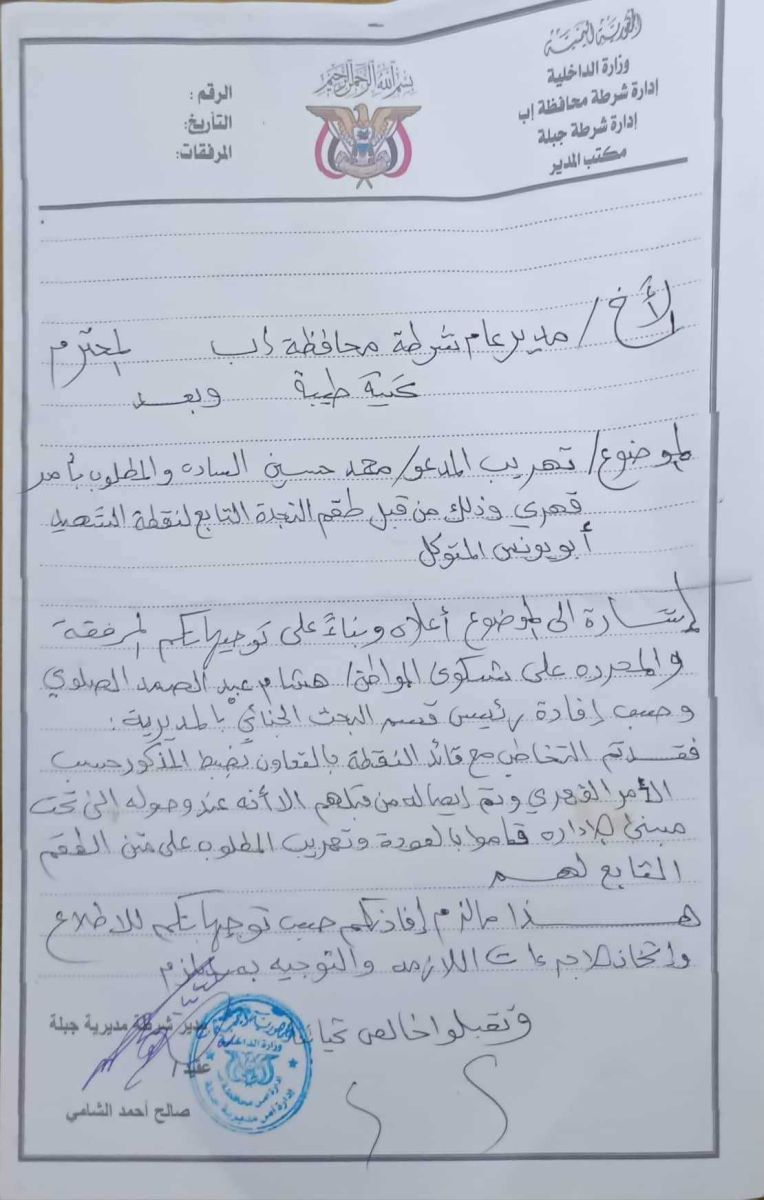 الجمهورية اليمنية
وزارة الداخلية
إدارة شرطة محافظة إب
إدارة شرطة جبلة
مكتب المدير
بسم الله الرحمن الرحيم
الرقم :
التأريخ:
المرفقات:
الأخ / مدير عام شرطة محافظة إب المحترم
تحية طيبة وبعــد
الموضوع/ تهريب المدعو/ محمد حسين الساده والمطلوب بأمر
قهري وذلك من قبل طقم النجدة التابع لنقطة الشهيد
أبو يونس المتوكل
إشارة الى الموضوع أعلاه وبناءً على توجيهاتكم المرفقة
والمحرره على شكوى المواطن/ هشام عبد الصمد الصلوي
وحسب إفادة رئيس قسم البحث الجنائي بالمديرية :
فقــد تم التخاطب مع قائد النقطة بالتعاون بضبط المذكور حسب
الأمر القهري وتم ايصاله من قبلهم الا أنه عند وصوله الى تحت
مبنى الاداره قاموا بالعودة وتهريب المطلوب على متن الطقم
التابع لهــم
هــذا مالزم إفادتكم حسب توجيهاتكم للاطلاع
واتخاذ الاجراءات اللازمه والتوجيه بما يلزم
وتقبلوا خالص تحياتنا
مدير شرطة مديرية جبلة
عقيد /
صالح أحمد الشامي
وزارة الداخلية
ادارة امن محافظة اب
ادارة امن مديرية جبلة